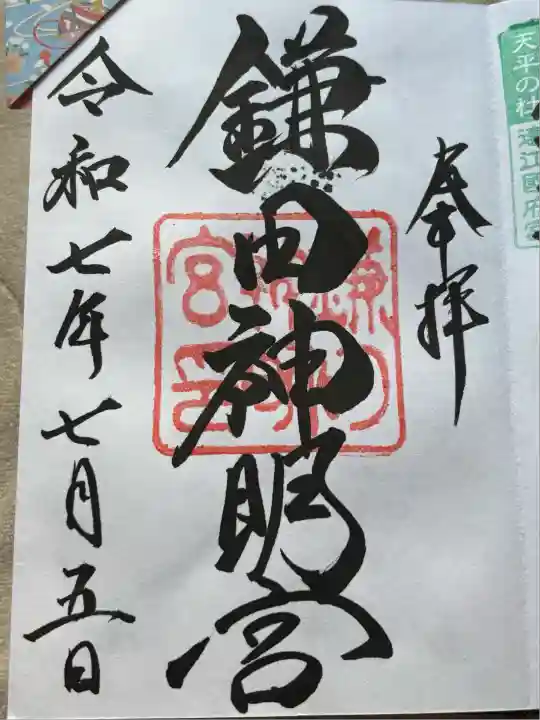 天平の社
遠江國府宮
奉拝
鎌田神明宮
令和七年七月五日